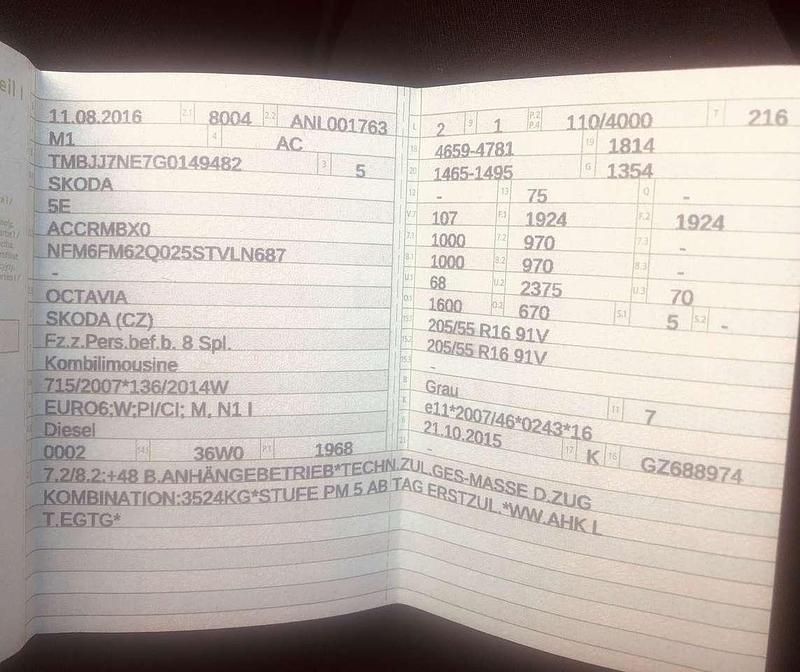 eil I
11.08.2016 2.1 8004 2.2 ANL001763
M1 4 AC
TMBJJ7NE7G0149482 3 5
SKODA
5E
ACCRMBX0
NFM6FM62Q025STVLN687
-
OCTAVIA
SKODA (CZ)
Fz.z.Pers.bef.b. 8 Spl.
Kombilimousine
715/2007*136/2014W
EURO6;W;PI/CI; M, N1 I
Diesel
0002 14.1 36W0 P.1 1968
L 2 9 1 P.2 P.4 110/4000 T 216
18 4659-4781 19 1814
20 1465-1495 G 1354
12 - 13 75 Q -
V.7 107 F.1 1924 F.2 1924
7.1 1000 7.2 970 7.3 -
8.1 1000 8.2 970 8.3 -
U.1 68 U.2 2375 U.3 70
O.1 1600 O.2 670 S.1 5 S.2 -
15.1 205/55 R16 91V
15.2 205/55 R16 91V
15.3 -
R Grau 11 7
K e11*2007/46*0243*16
6 21.10.2015 17 K 16 GZ688974
21 -
7.2/8.2:+48 B.ANHÄNGEBETRIEB*TECHN.ZUL.GES-MASSE D.ZUG
KOMBINATION:3524KG*STUFE PM 5 AB TAG ERSTZUL.*WW.AHK L
T.EGTG*